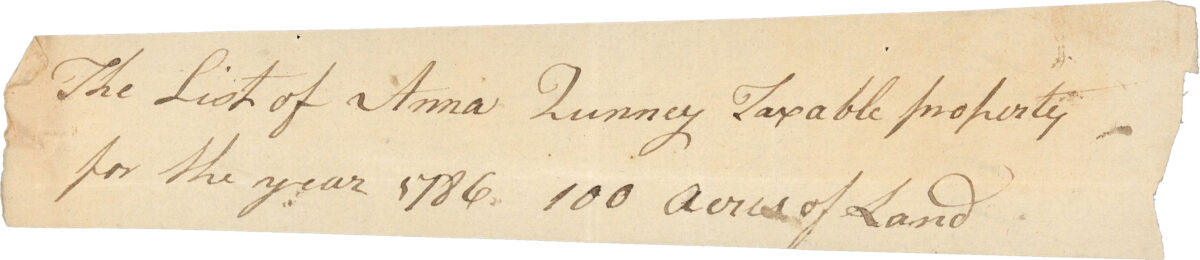 The List of Anna Qunney Taxable property
for the year 1786 100 Acres of Land